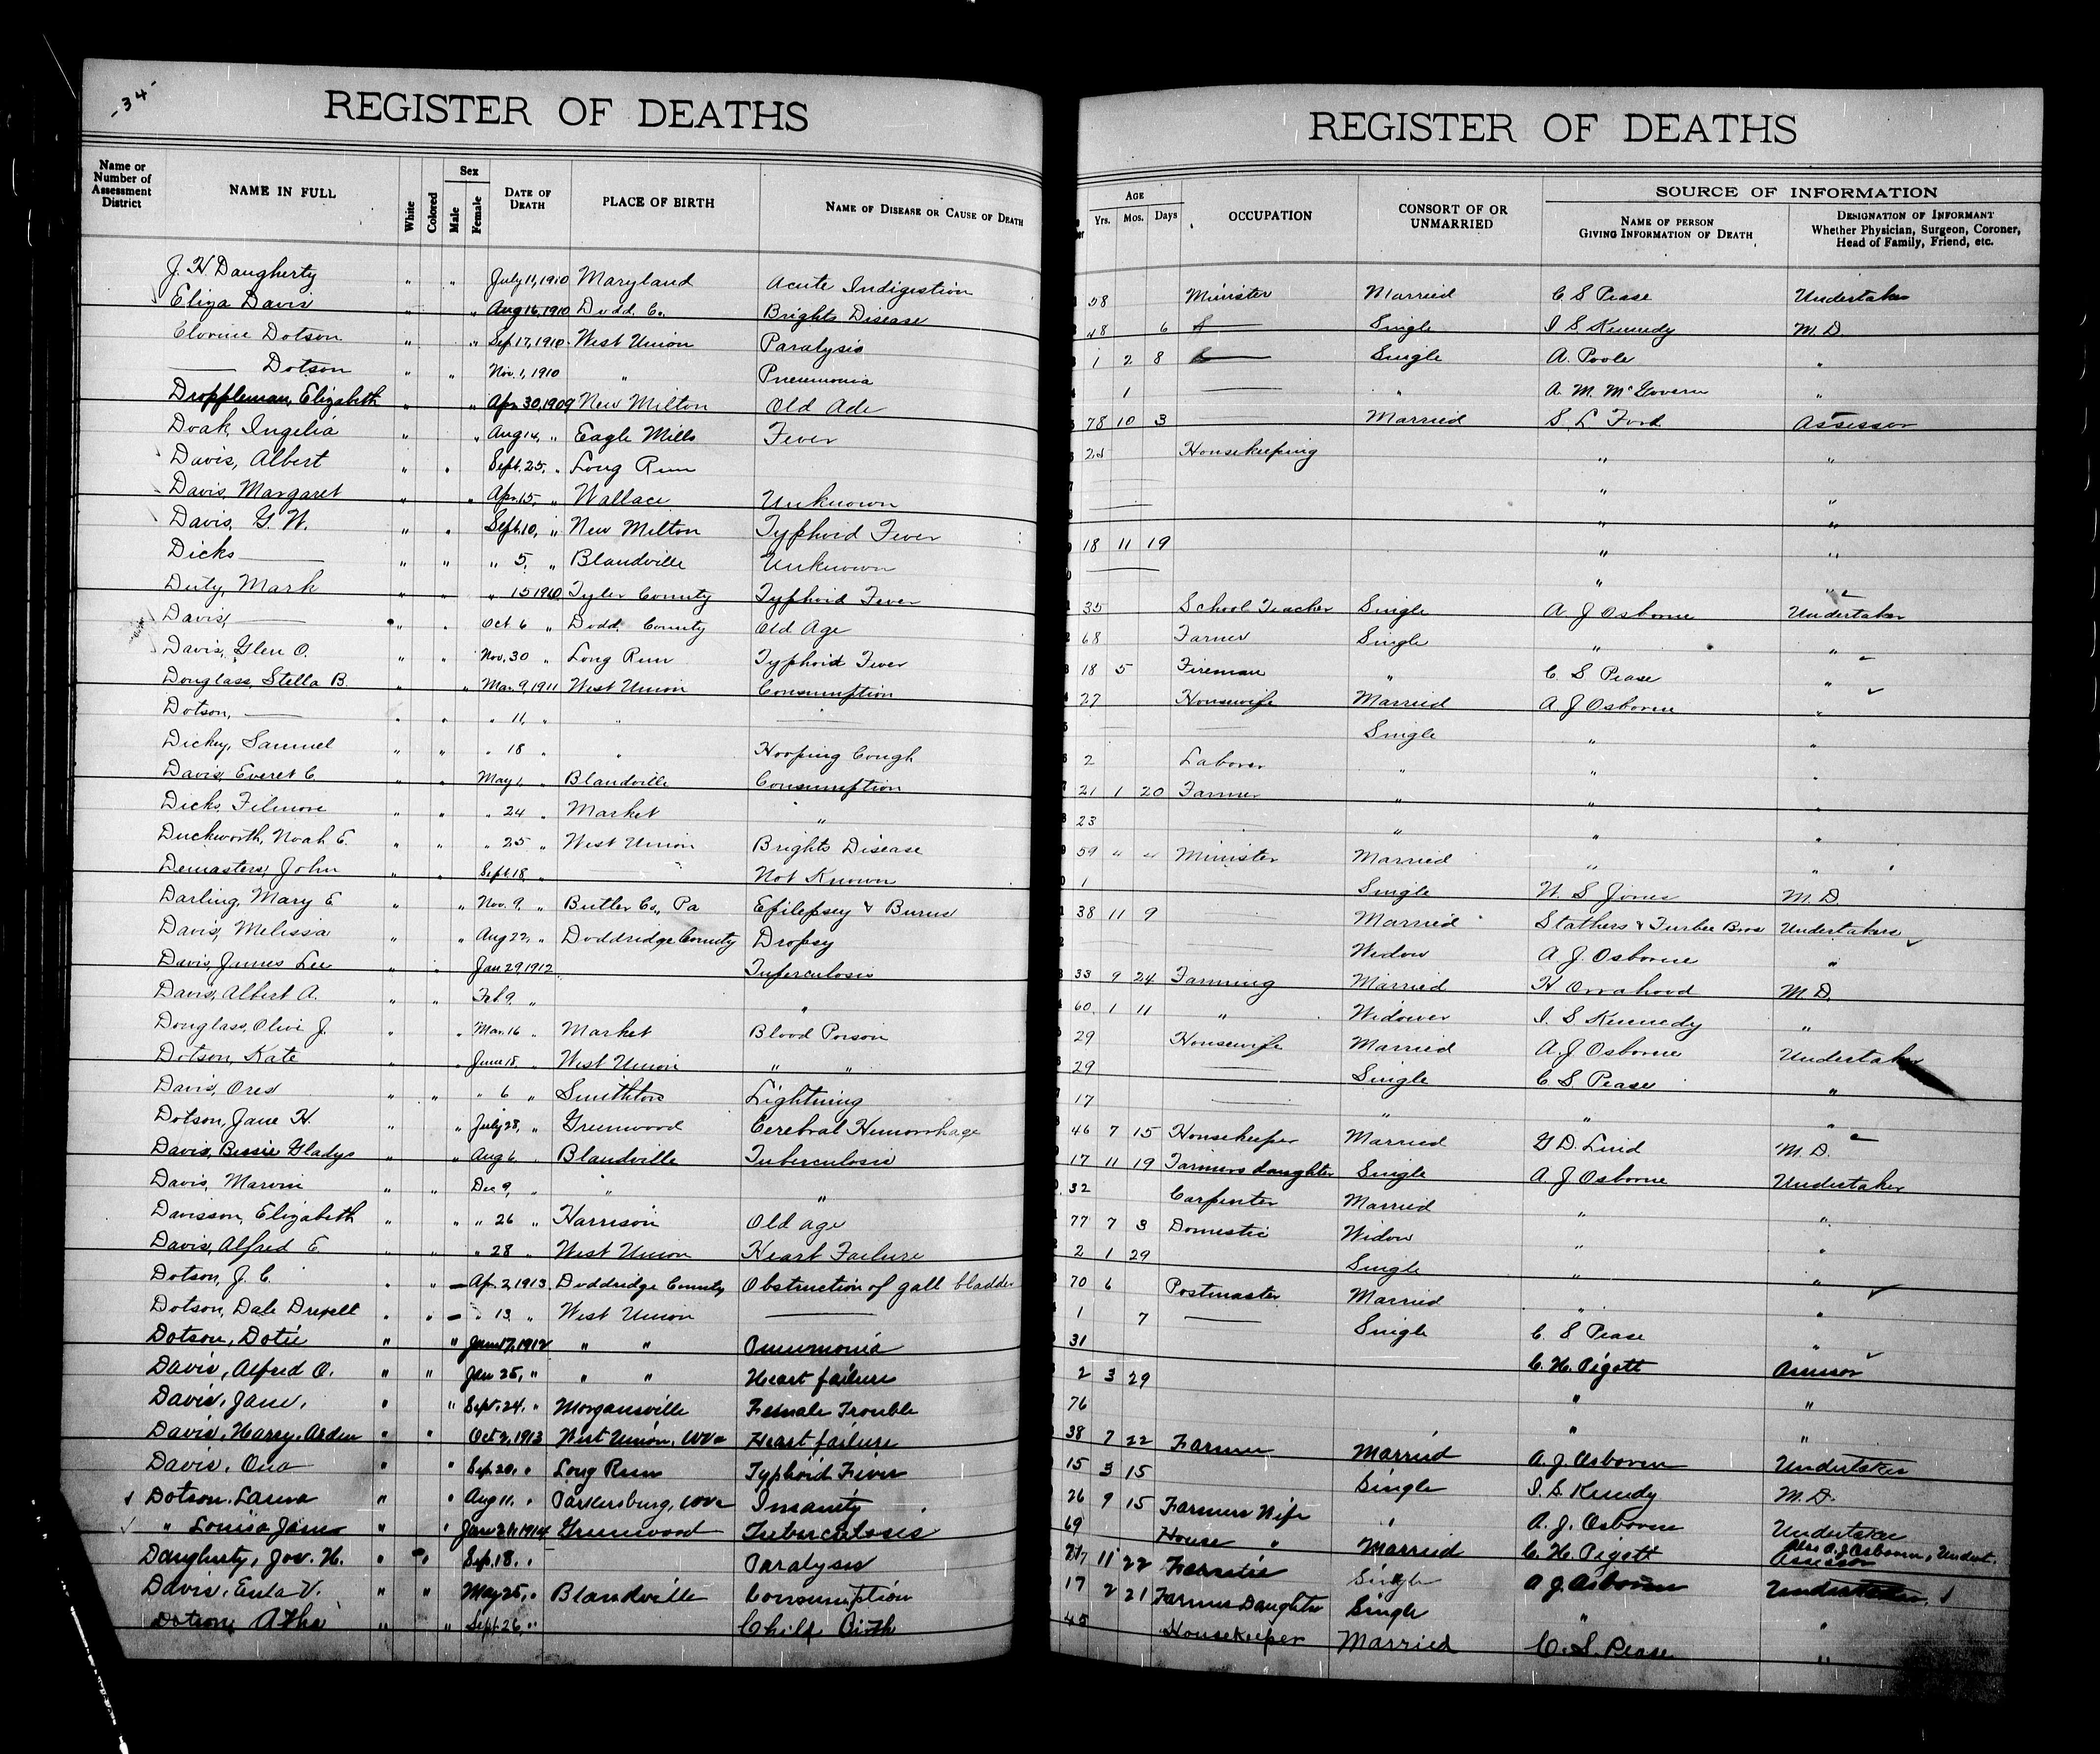 -34-
REGISTER OF DEATHS
Name or Number of Assessment District
NAME IN FULL
White
Colored
Sex
Male
Female
DATE OF DEATH
PLACE OF BIRTH
NAME OF DISEASE OR CAUSE OF DEATH
J. H Daugherty " " July 11, 1910 Maryland Acute Indigestion
Eliza Davis " " Aug 16, 1910 Dodd. Co. Brights Disease
Dotson " " Sep. 17, 1910 West Union Paralysis
—— Dotson " " Nov. 1, 1910 " Pneumonia
Droppleman, Elizabeth " " Apr. 30, 1909 New Milton Old Ade
Doak, Ingelia " " Aug 14, " Eagle Mills Fever
Davis, Albert " " Sept. 25, " Long Run
Davis, Margaret " " Apr. 15, " Wallace Unknown
Davis, G. W. " " Sept. 10, " New Milton Typhoid Fever
Dicks —— " " " 5, " Blandville Unknown
Duty, Mark " " " 15 1910 Tyler County Typhoid Fever
Davis, —— " " Oct 6 " Dodd. County Old Age
Davis, Glen O. " " Nov. 30 " Long Run Typhoid Fever
Douglass, Stella B. " " Mar. 9, 1911 West Union Consumption
Dotson, —— " " " 11, " " ——
Dickey, Samuel " " " 18 " " Hooping Cough
Davis, Everet C. " " May 1, " Blandville Consumption
Dicks, Filmore " " " 24 " Market "
Duckworth, Noah E. " " " 25 " West Union Brights Disease
Demasters, John " " Sept. 18, " —— Not Known
Darling, Mary E " " Nov. 9, " Butler Co., Pa Epilepsey & Burns
Davis, Melissa " " Aug 22, " Doddridge County Dropsy
Davis, James Lee " " Jan 29 1912 Tuberculosis
Davis, Albert A. " " Feb. 9, " "
Douglass, Olive J. " " Mar. 16 " Market Blood Poison
Dotson, Kate " " June 18, " West Union " "
Davis, Ores " " " 6 " Smithton Lightning
Dotson, Jane H. " " July 28, " Greenwood Cerebral Hemorrhage
Davis, Bessie Gladys " " Aug 6 " Blandville Tuberculosis
Davis, Marvin " " Dec 9, " " "
Davisson, Elizabeth " " " 26 " Harrison Old age
Davis, Alfred E. " " " 28 " West Union Heart Failure
Dotson, J. C. " " Apr. 2, 1913. Doddridge County Obstruction of gall bladder
Dotson, Dale Drexell " " " 13, " West Union ——
Dotson, Dotie " " June 17, 1912 " " Pneumonia
Davis, Alfred O. " " Jan 25, " " " Heart failure
Davis, Jane, " " Sept. 24, " Morgansville Female Trouble
Davis, Harry, Arden " " Oct 2, 1913 West Union, WVa Heart failure
Davis, Ona " " Sep. 20, " Long Run Typhoid Fiver
Dotson, Laura " " Aug 11, " Parkersburg, WVa Insanity
" Louisa Jane " " 1914 Greenwood Tuberculosis
Daugherty, Jos. H. " " Sep. 18. " Paralysis
Davis, Eula V. " " May 25, " Blandville Consumption
Dotson, " " Sept. 26, " Child Birth
REGISTER OF DEATHS
AGE
Yrs. Mos. Days
OCCUPATION
CONSORT OF OR UNMARRIED
SOURCE OF INFORMATION
NAME OF PERSON GIVING INFORMATION OF DEATH
DESIGNATION OF INFORMANT Whether Physician, Surgeon, Coroner, Head of Family, Friend, etc.
58 Minister Married C S Pease Undertaker
48 6 —— Single I S Kennedy M. D.
1 2 8 —— Single A. Poole "
1 —— " A. M. McGovern "
78 10 3 Married S. L Ford Assessor
Housekeeping " "
—— " "
—— " "
18 11 19 " "
—— " "
35 School Teacher Single A. J Osborne Undertaker
68 Farmer Single " "
18 5 Fireman " C. S Pease "
27 Housewife Married A J Osborne "
—— Single " "
2 Laborer " " "
21 1 20 Farmer " " "
23 —— " " "
59 " " Minister Married " "
1 —— Single W. S Jones M. D.
38 11 9 Married Stathers & Furbee Bros Undertakers
—— Widow A. J. Osborne "
33 9 24 Farming Married H Orrahood M. D.
60 1 11 " Widower I. S Kennedy "
29 Housewife Married A. J Osborne Undertaker
29 —— Single C S Pease "
17 —— " " "
46 7 15 Housekeeper Married G. D. Lind M. D.
17 11 19 Farmers daughter Single A J Osborne Undertaker
32 Carpenter Married " "
77 7 3 Domestic Widow " "
2 1 29 Single " "
70 6 Postmaster Married " "
1 7 —— Single C. S Pease "
31 C. H. Pigott Assessor
2 3 29 " "
76 " "
38 7 22 Farmer Married A. J. Osborne Undertaker
15 3 15 Single I. S. M. D.
26 9 15 Farmers Wife " A. J. Osborne Undertaker
69 House " Married C. H. Pigott Also A. J. Osborne, Undert. Assessor
11 22 Single A J Osborne Undertaker
17 2 21 Farmers Daughter Single " "
45 Housekeeper Married C. S. Pease "